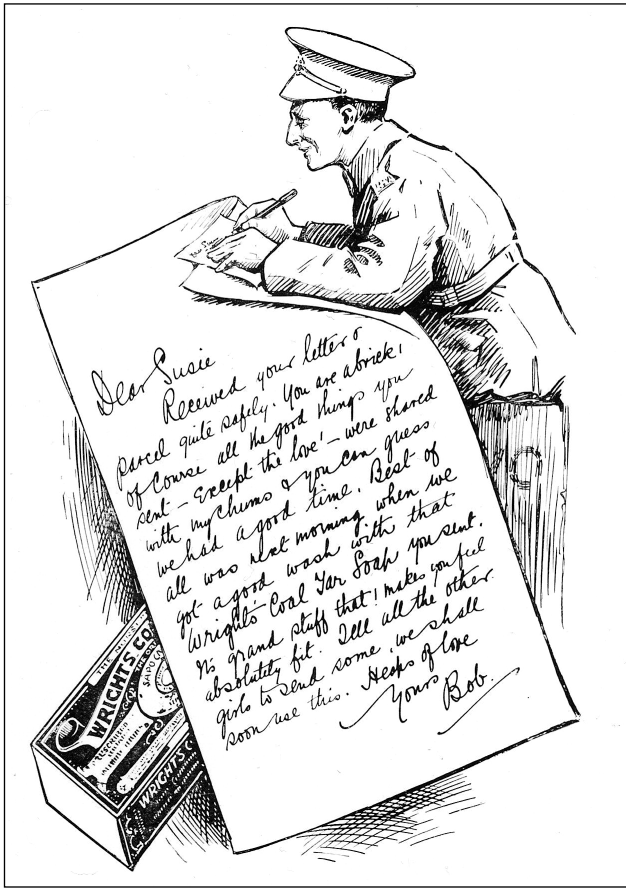 Dear Susie
Received your letter &
parcel quite safely. You are a brick!
Of Course all the good things you
sent – Except the love! – were shared
with my Chums & you can guess
we had a good time. Best of
all was next morning when we
got a good wash with that
Wright's Coal Tar Soap you sent.
It's grand stuff that! makes you feel
absolutely fit. Tell all the other
girls to send some, we shall
soon use this. Heaps of love
Yours
Bob.
THE
WRIGHT'S CO
SAPO C
WRIGHT'S C